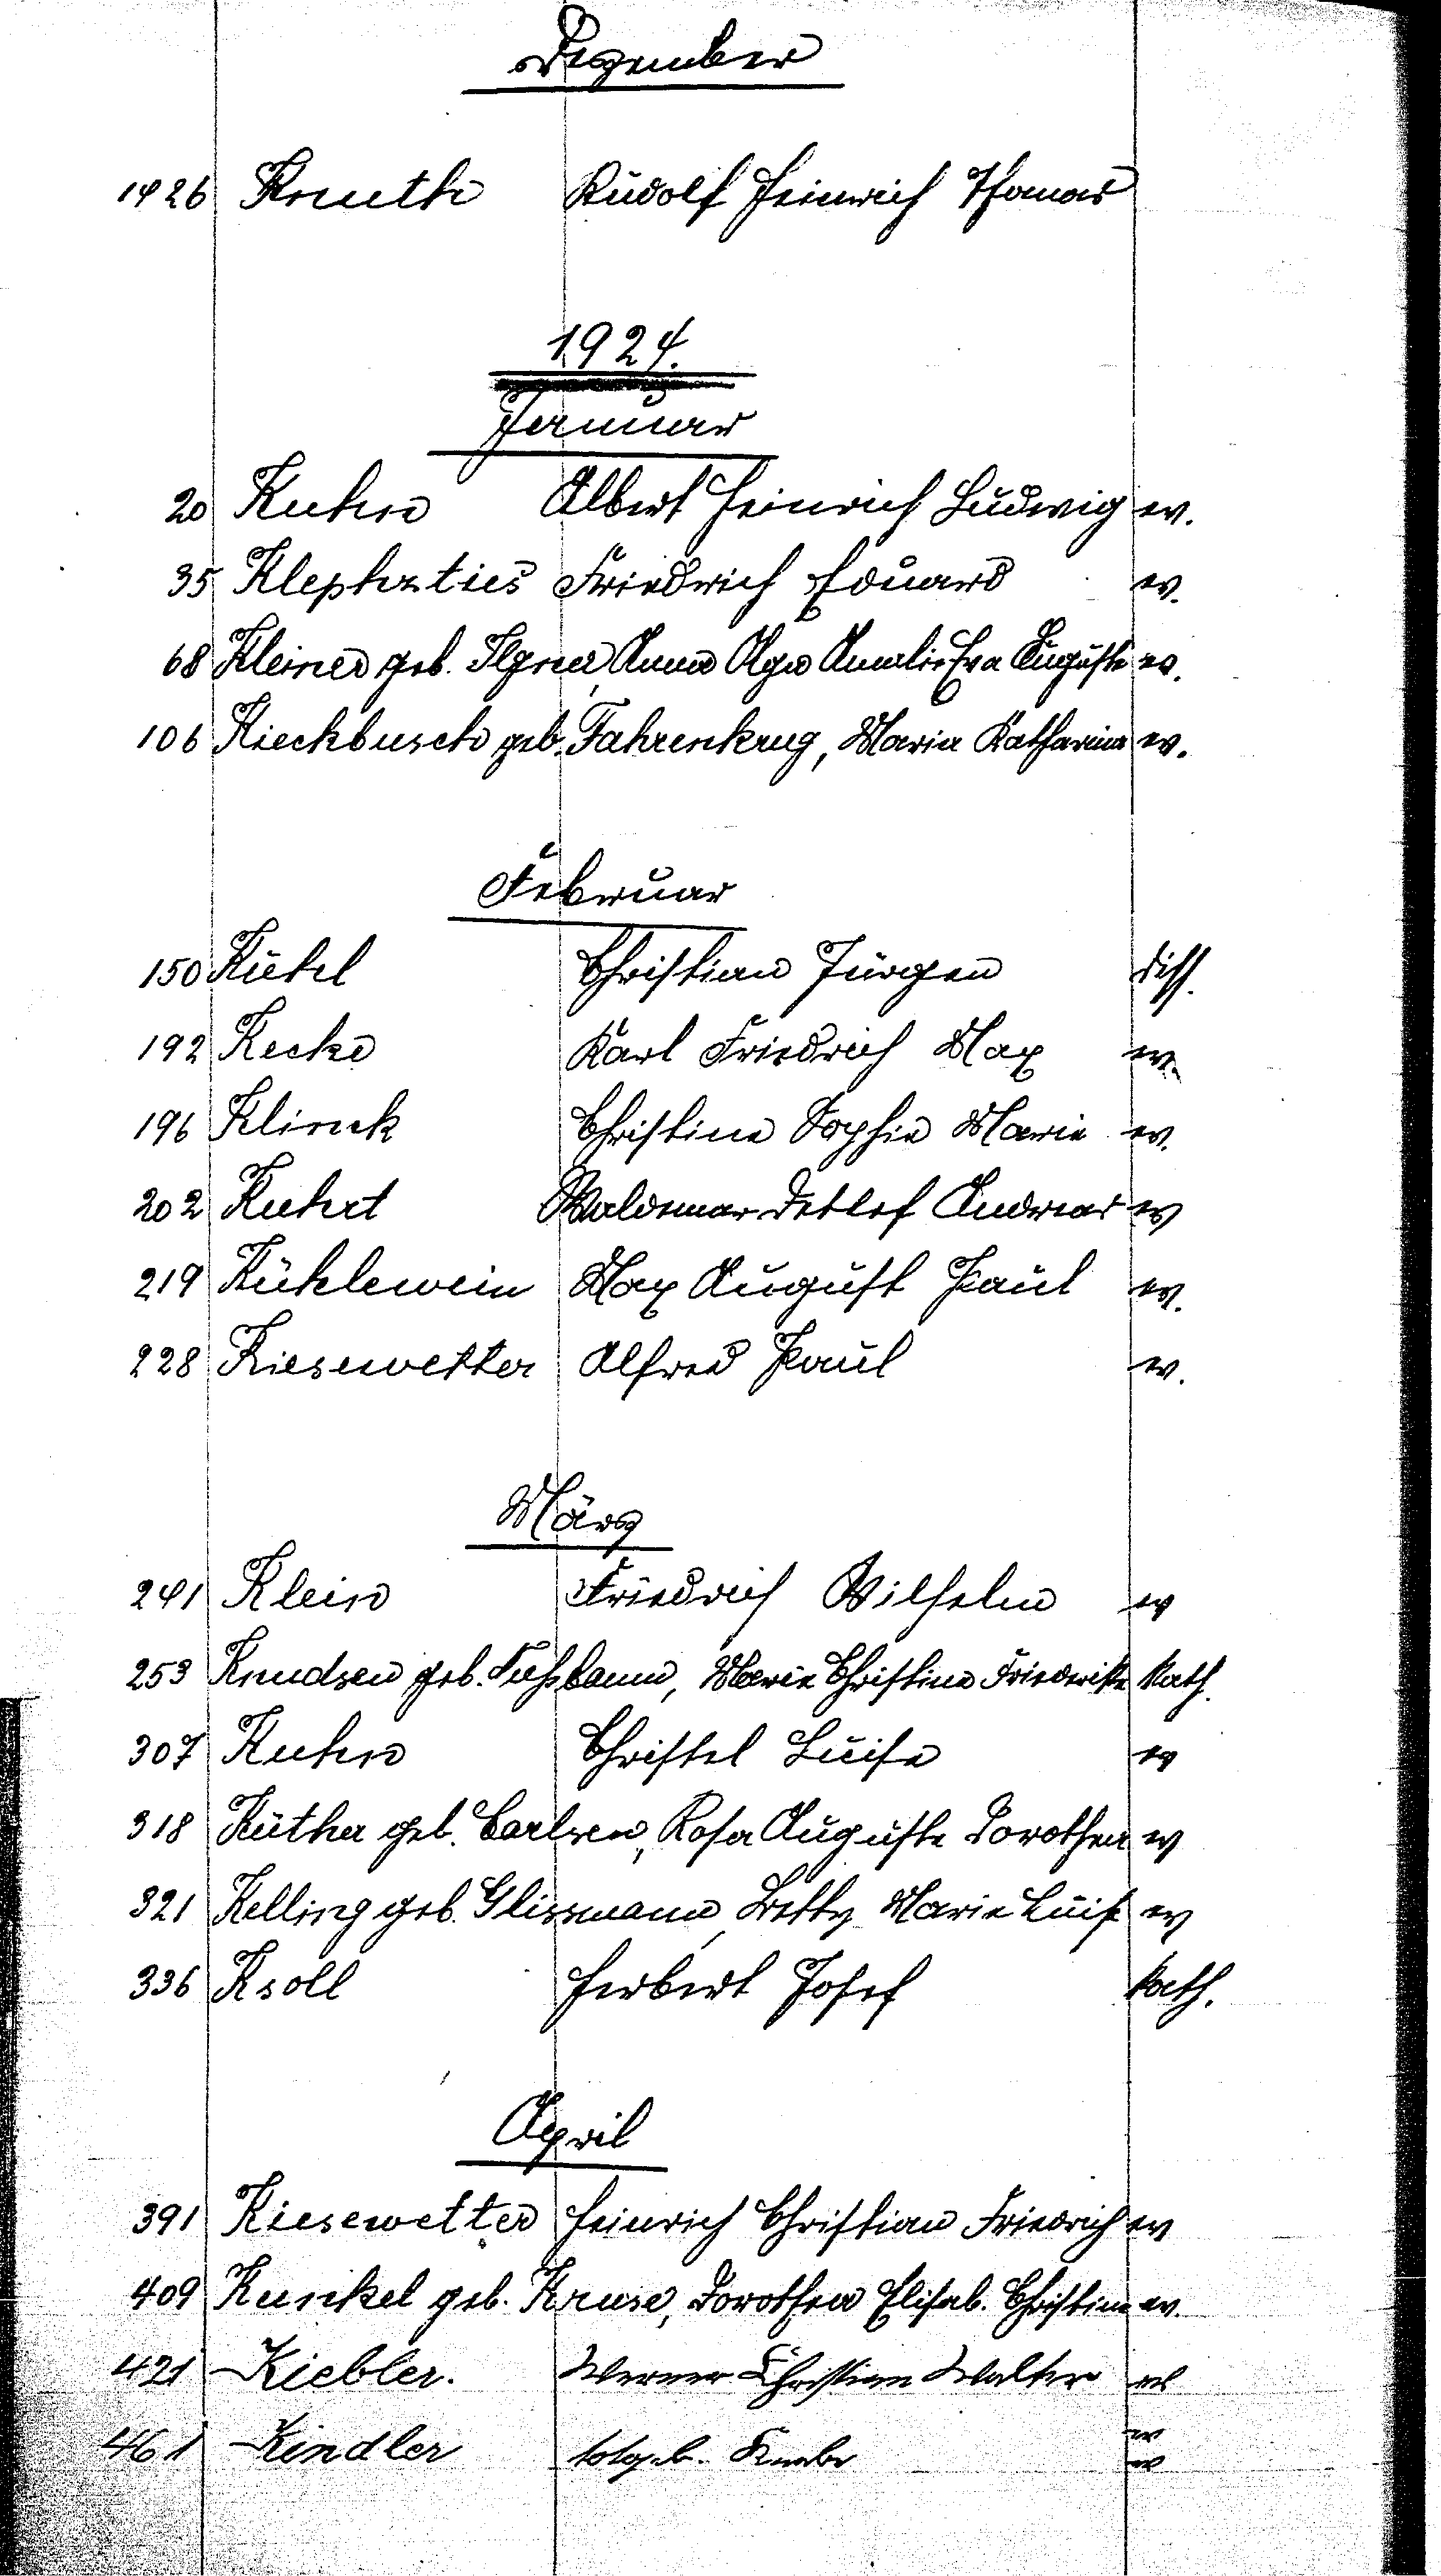 Dezember
1426 Knuth Rudolf Heinrich Thomas
1924.
Januar
20 Kuhn Albert Heinrich Ludwig ev.
35 Klephzties Friedrich Eduard ev.
68 Kleiner geb. Ilgner, Anna Olga Amalie Eva Auguste ev.
106 Kieckbusch geb. Fahrenkrug, Maria Katharina ev.
Februar
150 Kühl Christian Jürgen diss.
192 Kecke Karl Friedrich Max ev.
196 Klinck Christine Sophie Marie ev.
202 Kuhrt Waldemar Detlef Andreas ev
219 Kühlewein Max August Paul ev.
228 Kiesewetter Alfred Paul ev.
März
241 Klein Friedrich Wilhelm ev
253 Knudsen geb. Marie Christine Friederike kath.
307 Kuhn Christel Luise ev
318 Küther geb. Carlsen, Rosa Auguste Dorothea ev
321 Kelling geb. Glissmann, Betty Marie Luise ev
336 Ksoll Herbert Josef kath.
April
391 Kiesewetter Heinrich Christian Friedrich ev
409 Kunkel geb. Kruse, Dorothea Elisab. Christine ev.
421 Kiebler. Werner Christian Walter ev
461 Kindler totgeb. Knabe ev
ev